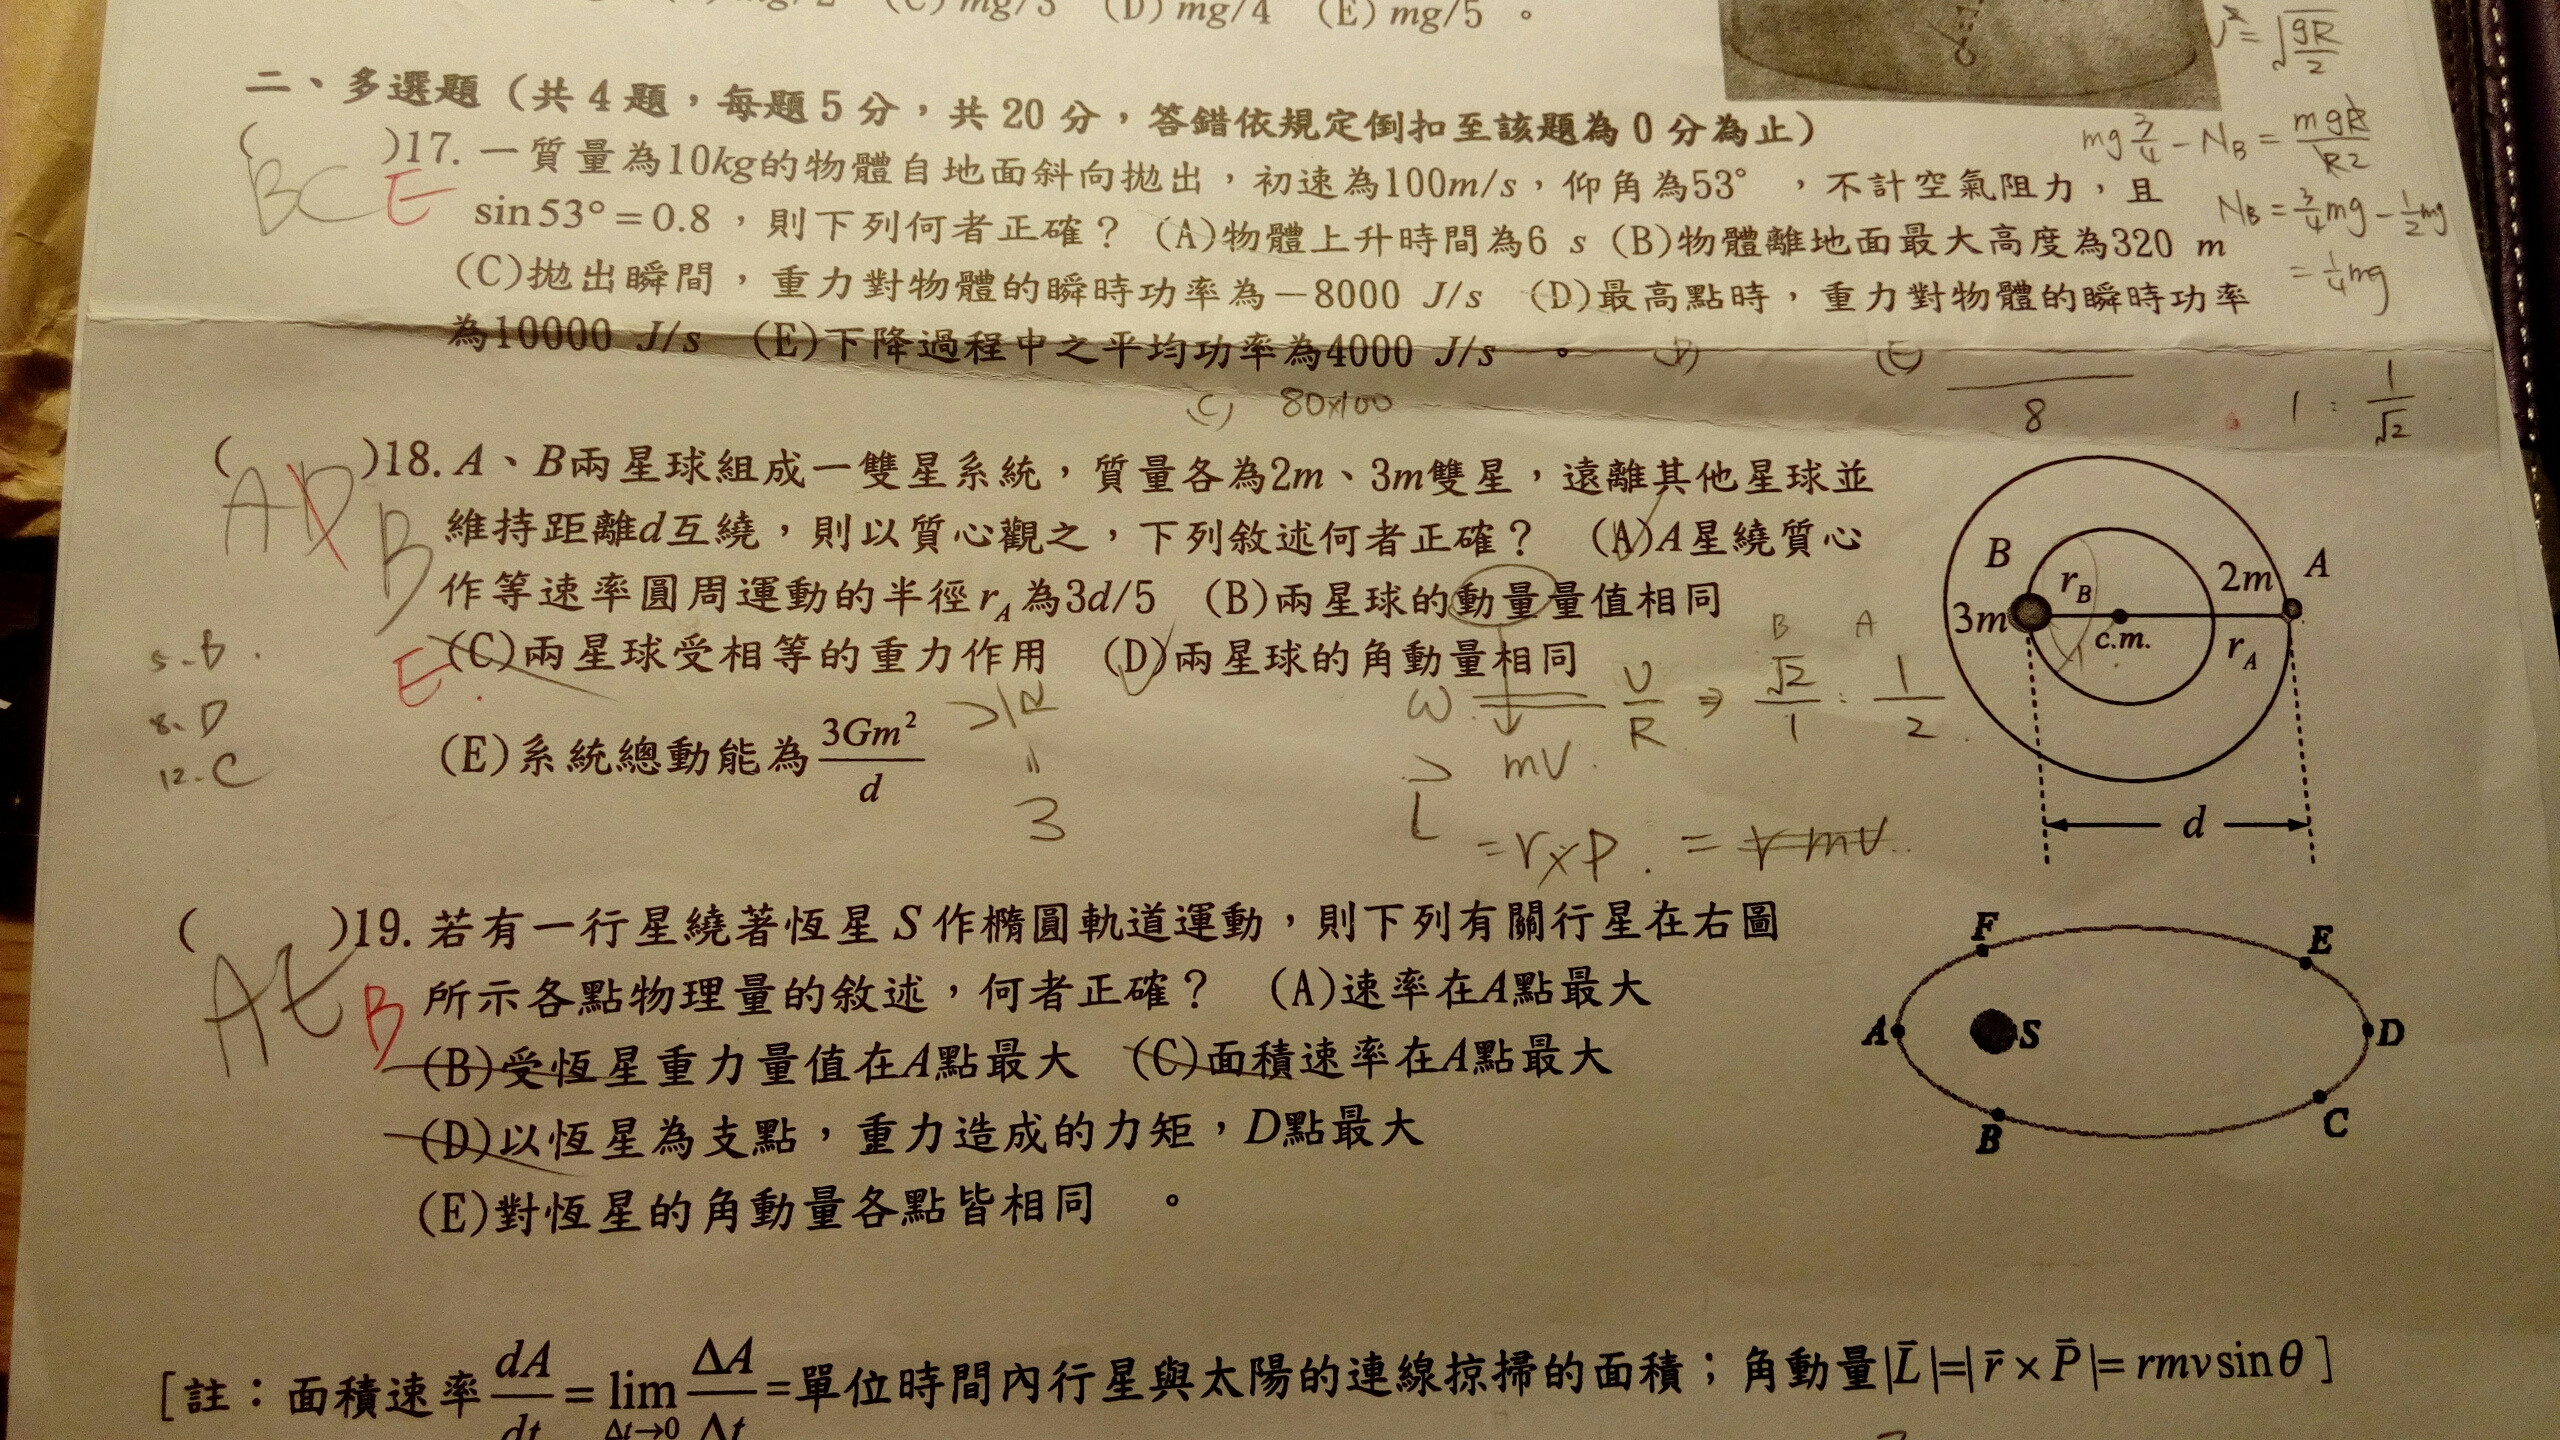 (C) mg/3 (D) mg/4 (E) mg/5 。
二、多選題（共 4 題，每題 5 分，共 20 分，答錯依規定倒扣至該題為 0 分為止）
( BC E )17. 一質量為10kg的物體自地面斜向拋出，初速為100m/s，仰角為53°，不計空氣阻力，且
sin53°＝0.8，則下列何者正確？ (A)物體上升時間為6 s (B)物體離地面最大高度為320 m
(C)拋出瞬間，重力對物體的瞬時功率為－8000 J/s (D)最高點時，重力對物體的瞬時功率
為10000 J/s (E)下降過程中之平均功率為4000 J/s 。
(D) (E)
(C) 80x100
8
1 : 1/√2
= √(gR/2)
mg 3/4 - N_B = mgR/R2
N_B = 3/4 mg - 1/2 mg
= 1/4 mg
( AD B E )18. A、B兩星球組成一雙星系統，質量各為2m、3m雙星，遠離其他星球並
維持距離d互繞，則以質心觀之，下列敘述何者正確？ (A)A星繞質心
作等速率圓周運動的半徑r_A為3d/5 (B)兩星球的動量量值相同
(C)兩星球受相等的重力作用 (D)兩星球的角動量相同
(E)系統總動能為3Gm²/d
5.B.
8.D
12.C
3
B A
ω V/R ⇒ √2/1 : 1/2
mV.
L = r x P. = rmv
B 3m r_B c.m. r_A 2m A
d
( AE B )19. 若有一行星繞著恆星 S 作橢圓軌道運動，則下列有關行星在右圖
所示各點物理量的敘述，何者正確？ (A)速率在A點最大
(B)受恆星重力量值在A點最大 (C)面積速率在A點最大
(D)以恆星為支點，重力造成的力矩，D點最大
(E)對恆星的角動量各點皆相同 。
F E
A S D
B C
[註：面積速率 dA/dt = lim Δt→0 ΔA/Δt =單位時間內行星與太陽的連線掠掃的面積；角動量|L⃗|=|r⃗×P⃗|=rmvsinθ]